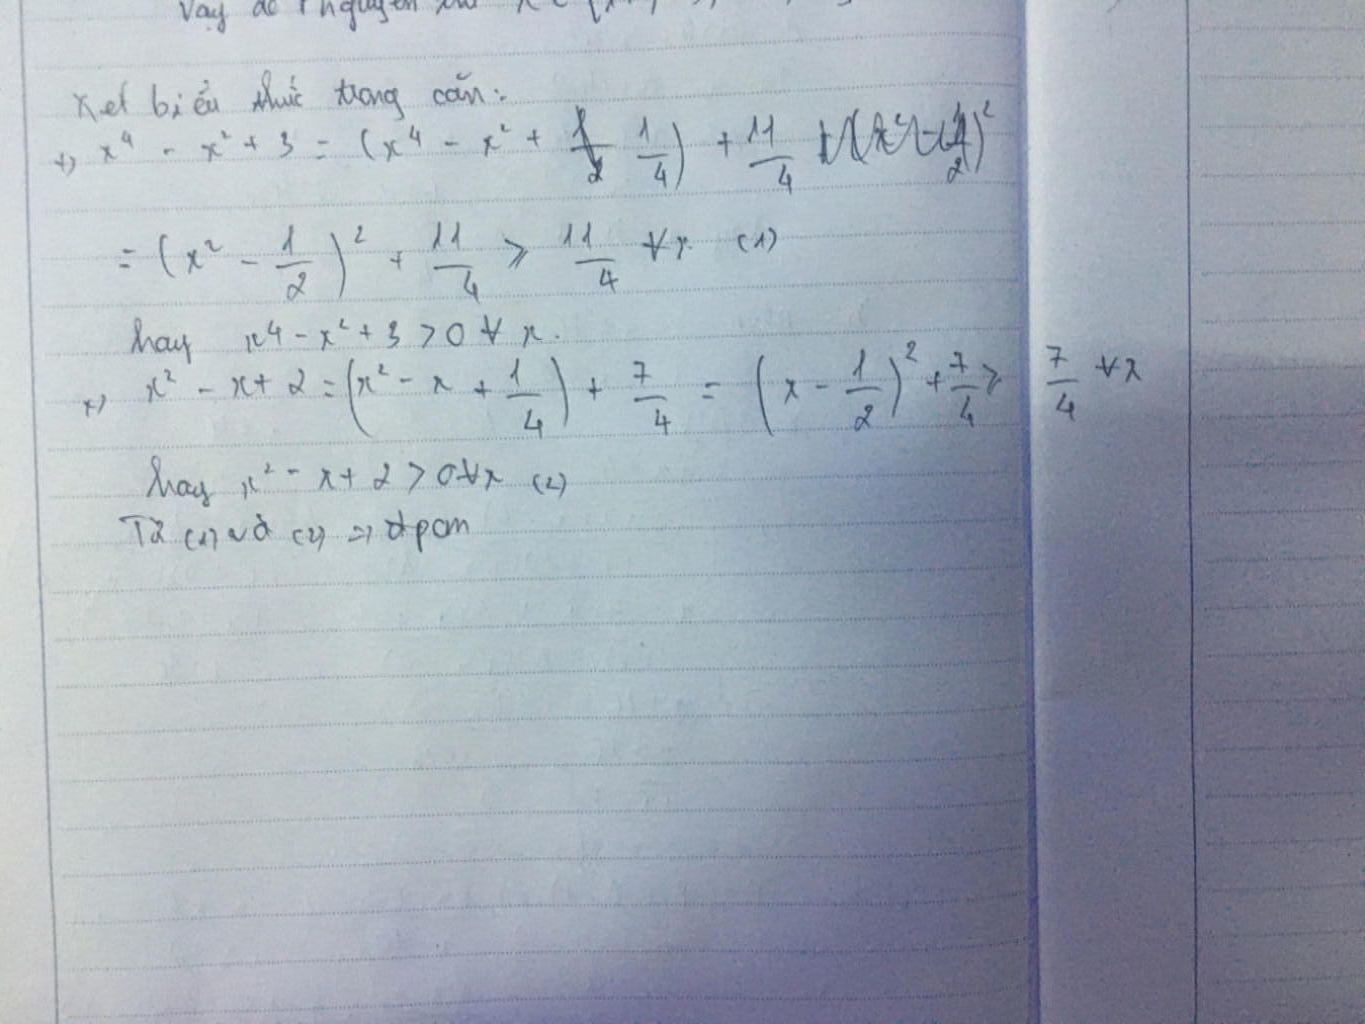 Vay để nguyên thì x ∈ {
Xét biểu thức trong căn:
+) x⁴ - x² + 3 = (x⁴ - x² + 1/4) + 11/4
= (x² - 1/2)² + 11/4 ⩾ 11/4 ∀x (1)
hay x⁴ - x² + 3 > 0 ∀ x.
+) x² - x + 2 = (x² - x + 1/4) + 7/4 = (x - 1/2)² + 7/4 ⩾ 7/4 ∀x
hay x² - x + 2 > 0 ∀x (2)
Từ (1) và (2) => đpcm